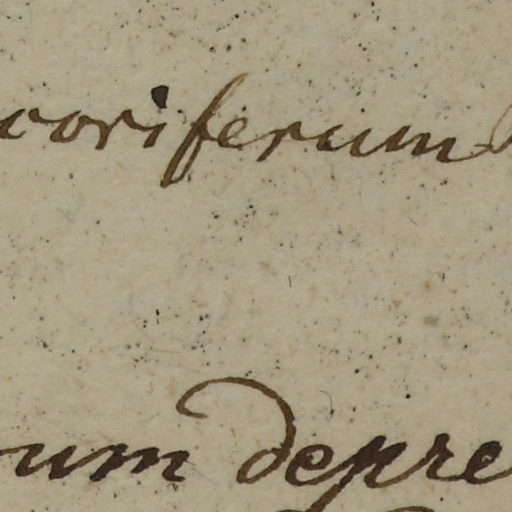 coriferum
um depre